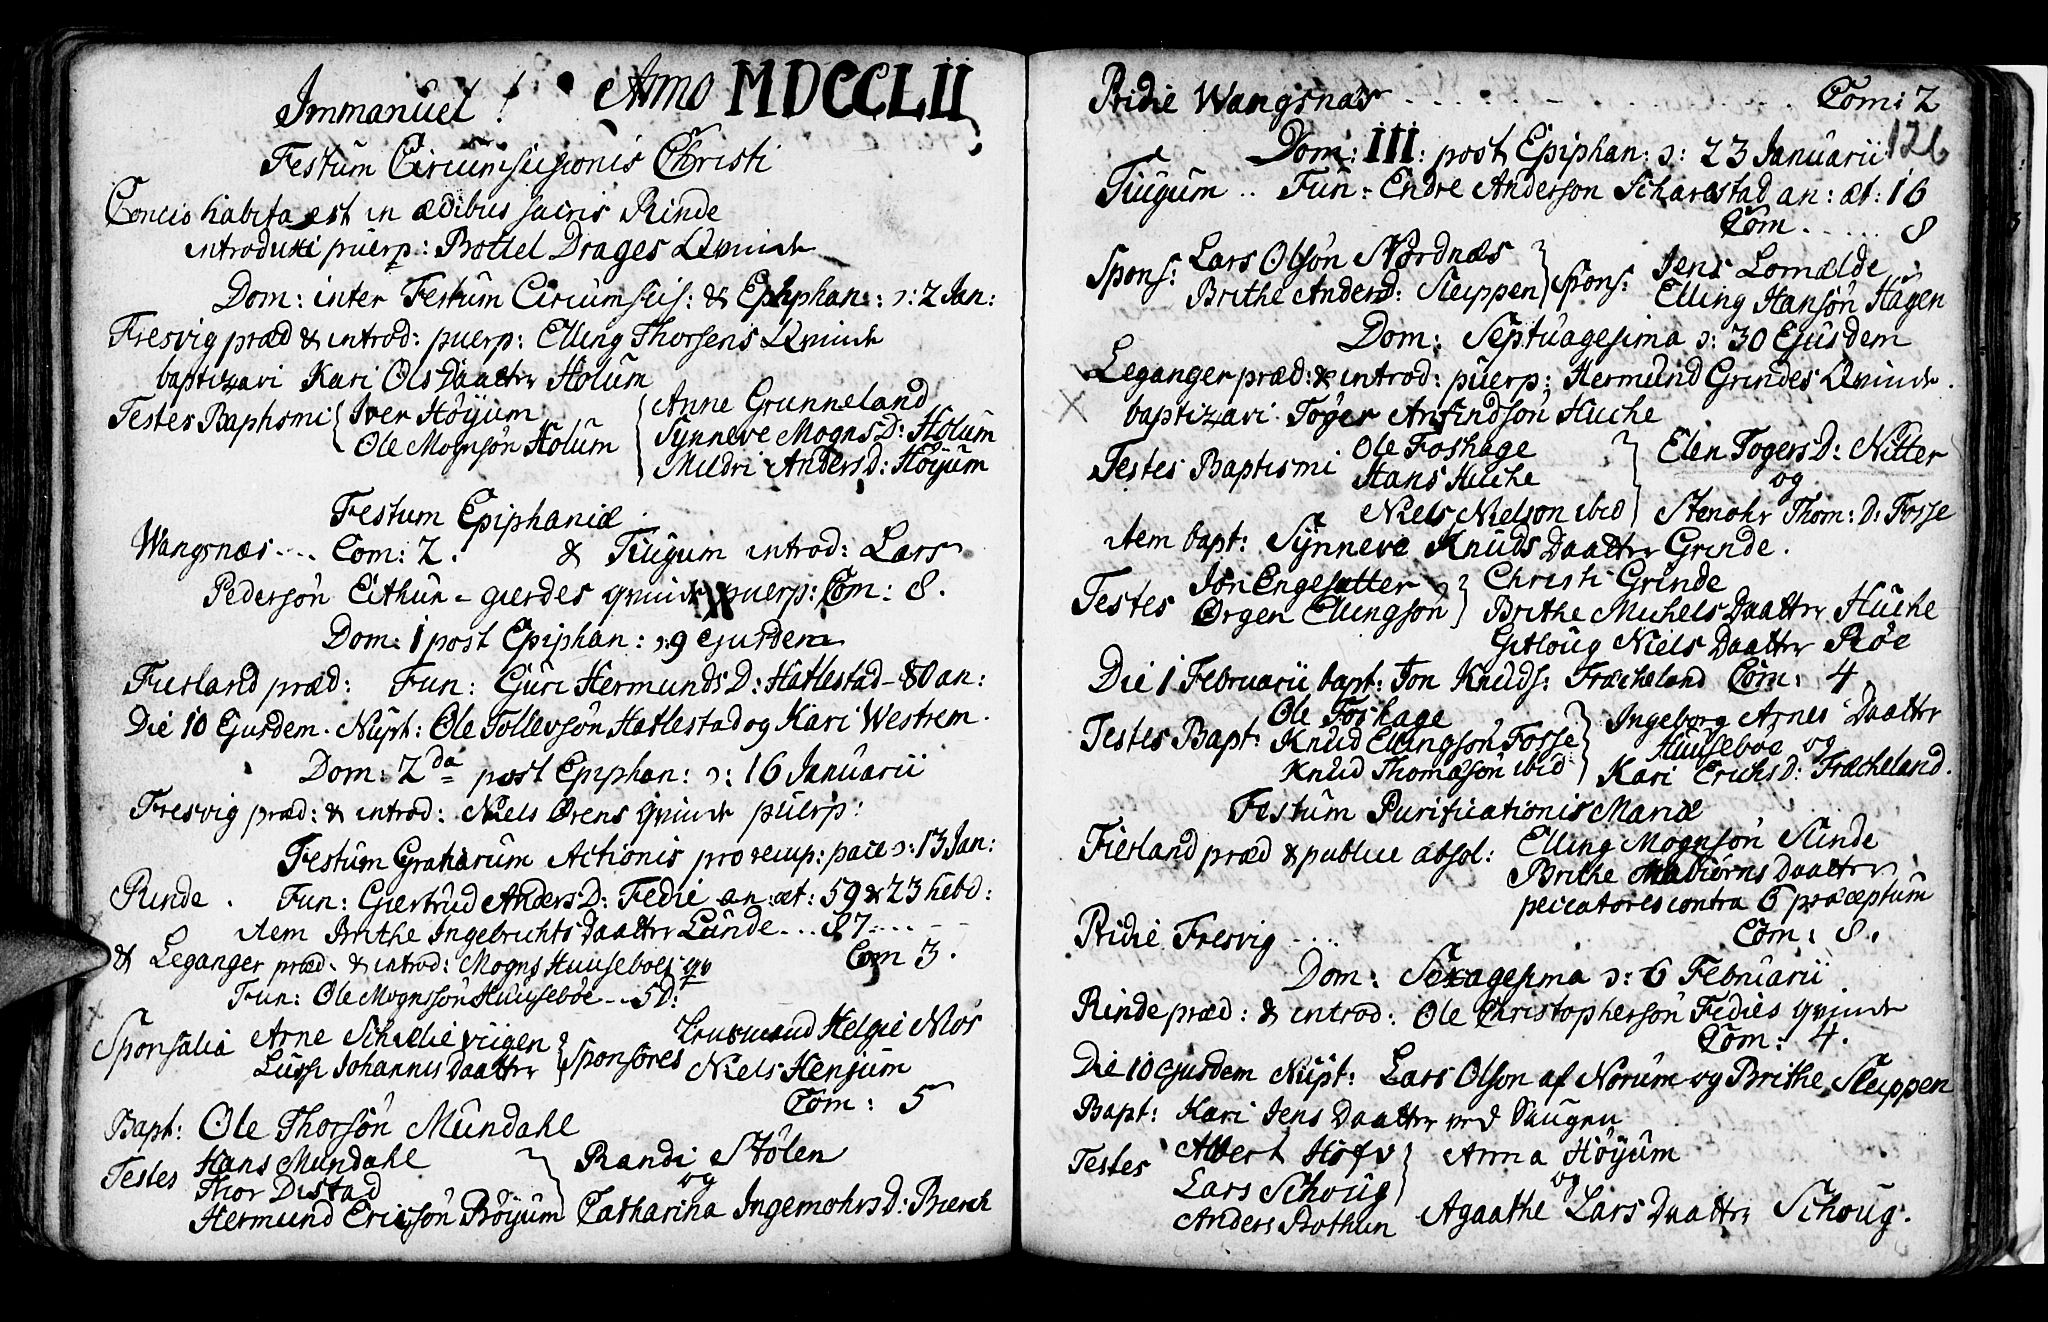 Immanuel! Anno MDCCLII
Festum Circumsisionis Christi
Concio habita est in ædibus sacris Rinde
introduxi puerp: Bottel Drages Qvinde
Dom: inter Festum Circumscis: & Epiphan: ɔ: 2 Jan:
Fresvig præd & introd: puerp: Elling Thorsens Qvinde
baptizavi Kari Ols Daatter Holum
Testes Baptismi { Iver Höyum { Anne Grunneland
Ole Mognsön Holum Synneve Mogns D: Holum
Mildri Anders D: Höyum
Festum Epiphaniæ
Wangsnæs .... Com: 2. & Tiugum introd: Lars
Pedersön Eithun-gierdes qvinde puerp: Com: 8.
Dom: 1 post Epiphan: ɔ: 9 ejusdem
Fierland præd: Fun: Guri Hermunds D: Hatlestad - 80 an:
Die 10 Ejusdem. Nüpt: Ole Tollevsön Hatlestad og Kari Westrem.
Dom: 2da post Epiphan: ɔ: 16 Januarii
Fresvig præd: & introd: Niels Ørens qvinde puerp:
Festum Gratiarum Actionis pro recup: pace ɔ: 13 Jan:
Rinde. Fun: Giertrud Anders D: Fedie an: æt: 59 & 23 hebd:
item Brithe Ingebrichts Daatter Lunde ... 87 ....
& Leganger præd. & introd: Mogns Huuseboes qv Com 3.
Fun: Ole Mognssön Huuseböe - .. 5 D:
Sponsalia Arne Schielieviigen } Sponsores Helgie Mos
Lussi Johannis Daatter Niels Henjum
Com: 5
Bapt: Ole Thorsön Mundahl
Testes Hans Mundahl } Randi Stölen
Thor Distad og
Hermund Ericsön Böyum Catharina Ingemohrs D: Bierch
Pridie Wangsnæs ........ Com: 2
126
Dom: III: post Epiphan: ɔ: 23 Januarii
Tiugum .. Fun: Endre Anderson Scharestad an: æt: 16
Com ..... 8
Spons: Lars Olsön Nordnæs } Spons: Jens Lomælde
Brithe Andersd: Sleippen Elling Hansön Hagen
Dom: Septuagesima ɔ: 30 Ejusdem
Leganger præd: & introd: puerp: Hermund Grindes Qvinde.
baptizavi Toger Anfindsön Huche
Testes Baptismi Ole Foshage } Elen Togers D: Nitter
Hans Huche og
Niels Nielson ibid Stenohr Thom: D: Fosse
item bapt: Synneve Knuds Daatter Grinde.
Testes Jon Engesætter } Christi Grinde
Ørgen Ellingsön Brithe Michels Daatter Huche
Gitloug Niels Daatter Röe
Die 1 Februarii bapt: Jon Knuds: Frøcheland Com: 4
Testes Bapt: Ole Foshage } Ingeborg Arnes Daatter
Knud Ellingsön Fosse Huuseböe og
Knud Thomæsön ibid Kari Erichs D: Fræcheland.
Festum Purificationis Mariæ
Fierland præd & publice absol: Elling Mognsön Slinde
Brithe Daatter
peccatores contra 6 præceptum
Pridie Fresvig ..... Com: 8.
Dom: Sexagesima ɔ: 6 Februarii
Rinde præd: & introd: Ole Christophersön Fedies qvinde
Com: 4.
Die 10 ejusdem Nüpt: Lars Olson af Norum og Brithe Sleippen
Bapt: Kari Jens Daatter ved Saugen
Testes Albert Hofv } Anna Höyum
Lars Schoug og
Anders Rothlin Agaathe Lars Daatter Schoug.